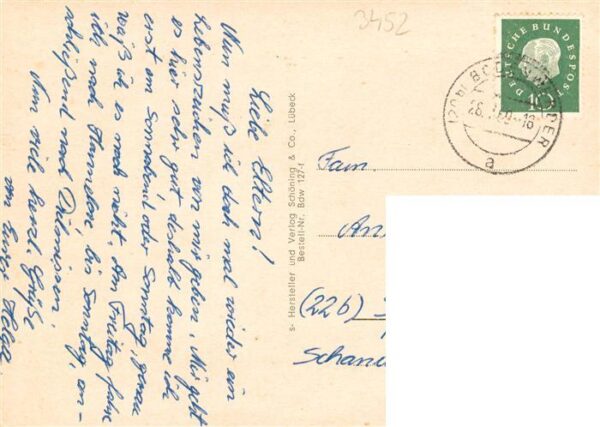 3452
DEUTSCHE BUNDESPOST
10
a
Liebe Eltern!
Nun muß ich doch mal wieder ein
Lebenszeichen von mir geben. Mir geht
es hier sehr gut, deshalb komme ich
erst am Sonnabend oder Sonntag, genau
weiß ich es noch nicht. Am Freitag fahre
ich nach bis Sonntag, an-
schließend nach
Nun viele herzl. Grüße
von Eurer
s- Hersteller und Verlag Schöning & Co., Lübeck
Bestell-Nr. Bdw 127-f
Fam.
(22b)